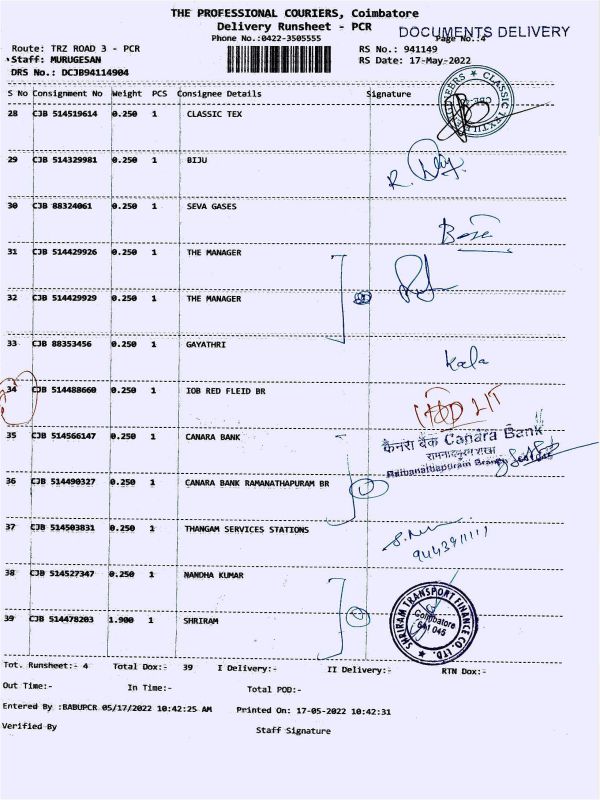 THE PROFESSIONAL COURIERS, Coimbatore
Delivery Runsheet - PCR
DOCUMENTS DELIVERY
Phone No.:0422-3505555
Page No.:4
Route: TRZ ROAD 3 - PCR
RS No.: 941149
Staff: MURUGESAN
RS Date: 17-May-2022
DRS No.: DCJB94114904
S No Consignment No Weight PCS Consignee Details Signature
28 CJB 514519614 0.250 1 CLASSIC TEX
CLASSIC TEXTILE
29 CJB 514329981 0.250 1 BIJU
R.
30 CJB 88324061 0.250 1 SEVA GASES
Bose
31 CJB 514429926 0.250 1 THE MANAGER
32 CJB 514429929 0.250 1 THE MANAGER
33 CJB 88353456 0.250 1 GAYATHRI
Kala
34 CJB 514488660 0.250 1 IOB RED FLEID BR
35 CJB 514566147 0.250 1 CANARA BANK
कैनरा बैंक Canara Bank
रामनाथपुरम शाखा
Ramanathapuram Branch
36 CJB 514490327 0.250 1 CANARA BANK RAMANATHAPURAM BR
37 CJB 514503831 0.250 1 THANGAM SERVICES STATIONS
38 CJB 514527347 0.250 1 NANDHA KUMAR
39 CJB 514478203 1.900 1 SHRIRAM
SHRIRAM TRANSPORT FINANCE CO. LTD.
Coimbatore
641 045
Tot. Runsheet:- 4 Total Dox:- 39 I Delivery:- II Delivery:- RTN Dox:-
Out Time:- In Time:- Total POD:-
Entered By :BABUPCR 05/17/2022 10:42:25 AM Printed On: 17-05-2022 10:42:31
Verified By
Staff Signature